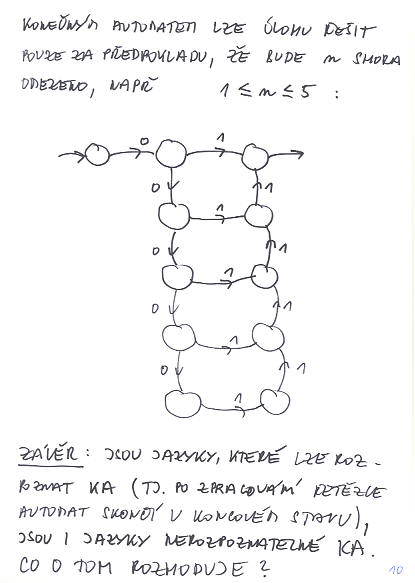 KONEČNÝM AUTOMATEM LZE ÚLOHU ŘEŠIT
POUZE ZA PŘEDPOKLADU, ŽE BUDE n SHORA
OMEZENO, NAPŘ 1 ≤ n ≤ 5 :
0 1
0 1
1
0 1
1
0 1
1
0 1
1
ZÁVĚR : JSOU JAZYKY, KTERÉ LZE ROZ-
POZNAT KA (TJ. PO ZPRACOVÁNÍ ŘETĚZCE
AUTOMAT SKONČÍ V KONCOVÉM STAVU),
JSOU I JAZYKY NEROZPOZNATELNÉ KA.
CO O TOM ROZHODUJE ?
10